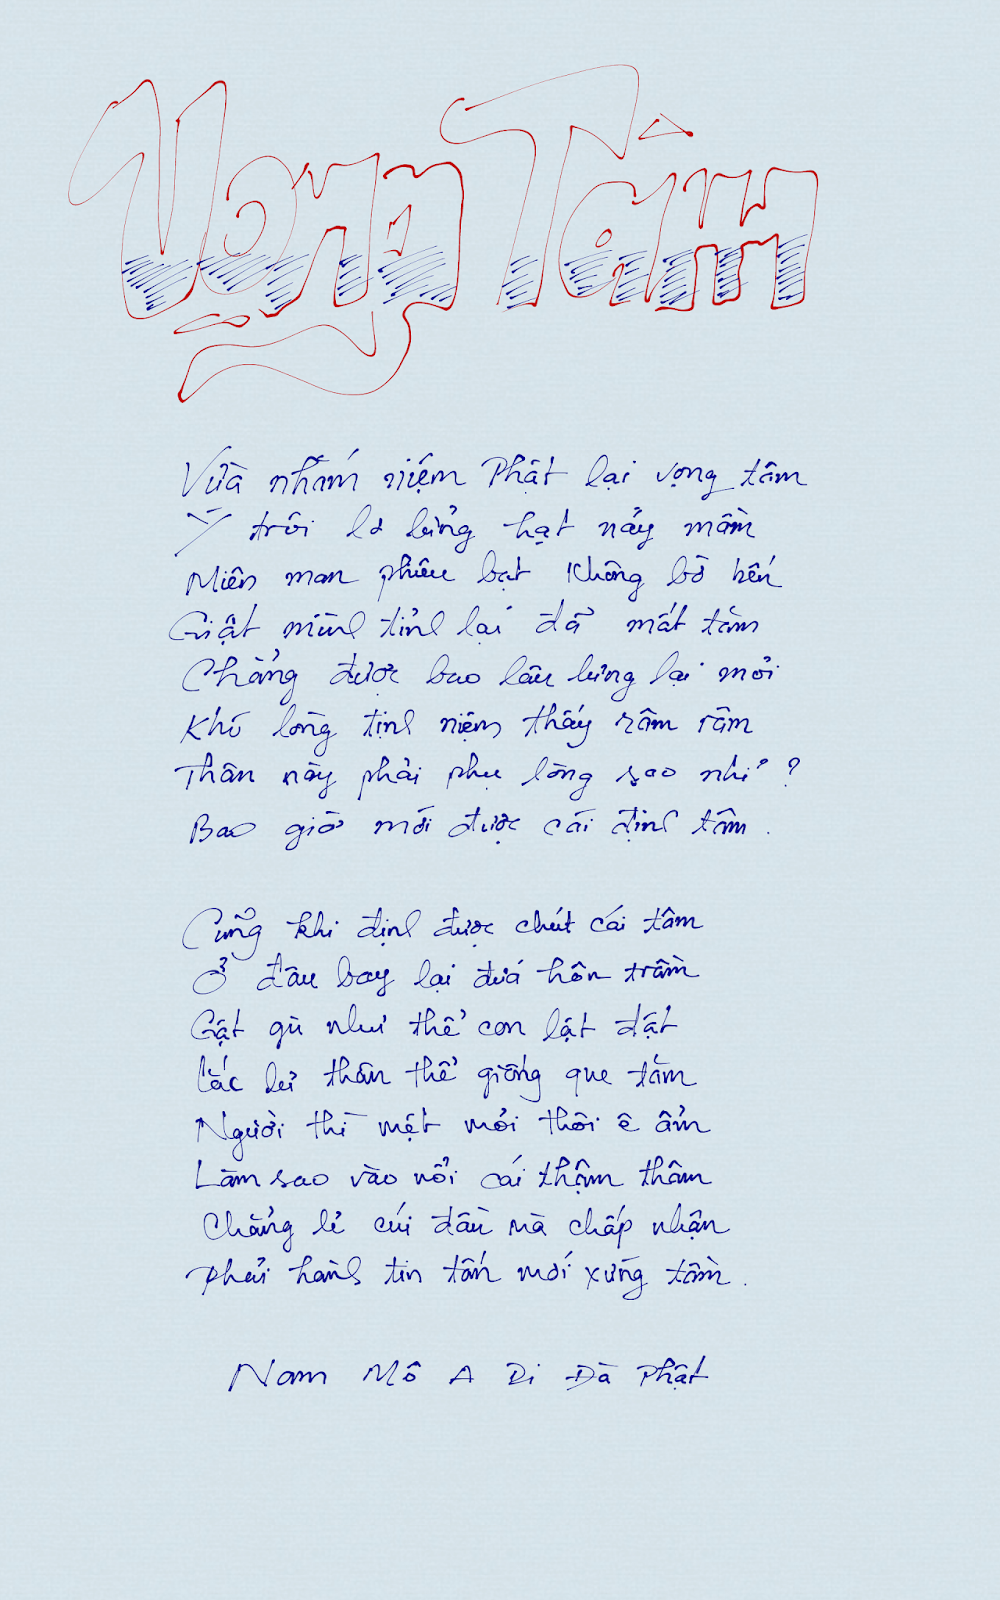 Vọng Tâm
Vừa nhắm niệm Phật lại vọng tâm
Ý trôi lơ lửng hạt nảy mầm
Miên man phiêu bạt không bờ bến
Giật mình tỉnh lại đã mất tăm
Chẳng được bao lâu lưng lại mỏi
Khó lòng tịnh niệm thấy râm râm
Thân này phải phụ lòng sao nhỉ ?
Bao giờ mới được cái định tâm .
Cũng khi định được chút cái tâm
Ở đâu bay lại đứa hôn trầm
Gật gù như thể con lật đật
Lắc lư thân thể giống que tăm
Người thì mệt mỏi thôi ê ẩm
Làm sao vào nổi cái thậm thâm
Chẳng lẻ cúi đầu mà chấp nhận
Phải hành tin tấn mới xứng tầm .
Nam Mô A Di Đà Phật